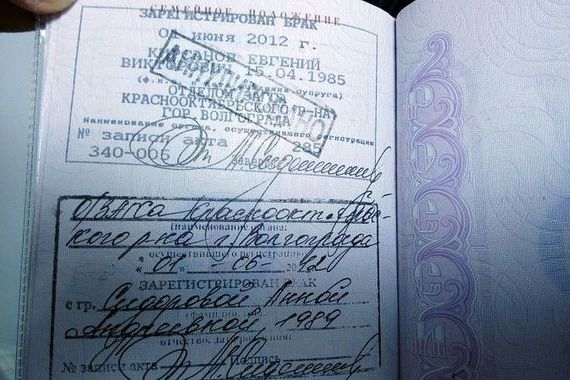 СЕМЕЙНОЕ ПОЛОЖЕНИЕ
ЗАРЕГИСТРИРОВАН БРАК
01 июня 2012 г.
ЕВГЕНИЙ
ВИКТОРОВИЧ 15.04.1985
супруга)
ОТДЕЛОМ
КРАСНООКТЯБРЬСКОГО Р-НА
ГОР. ВОЛГОГРАДА
Наименование органа, осуществившего регистрацию
№ записи акта 285
340-006
О/ЗАГСа Краснооктябрьс-
кого р-на г. Волгограда
(наименование органа,
осуществившего регистрацию)
"01" - 06 - 2012
ЗАРЕГИСТРИРОВАН БРАК
с гр. Сидоровой Анной
Андреевной, 1989
отчество, дата рождения)
№ записи акта Подпись